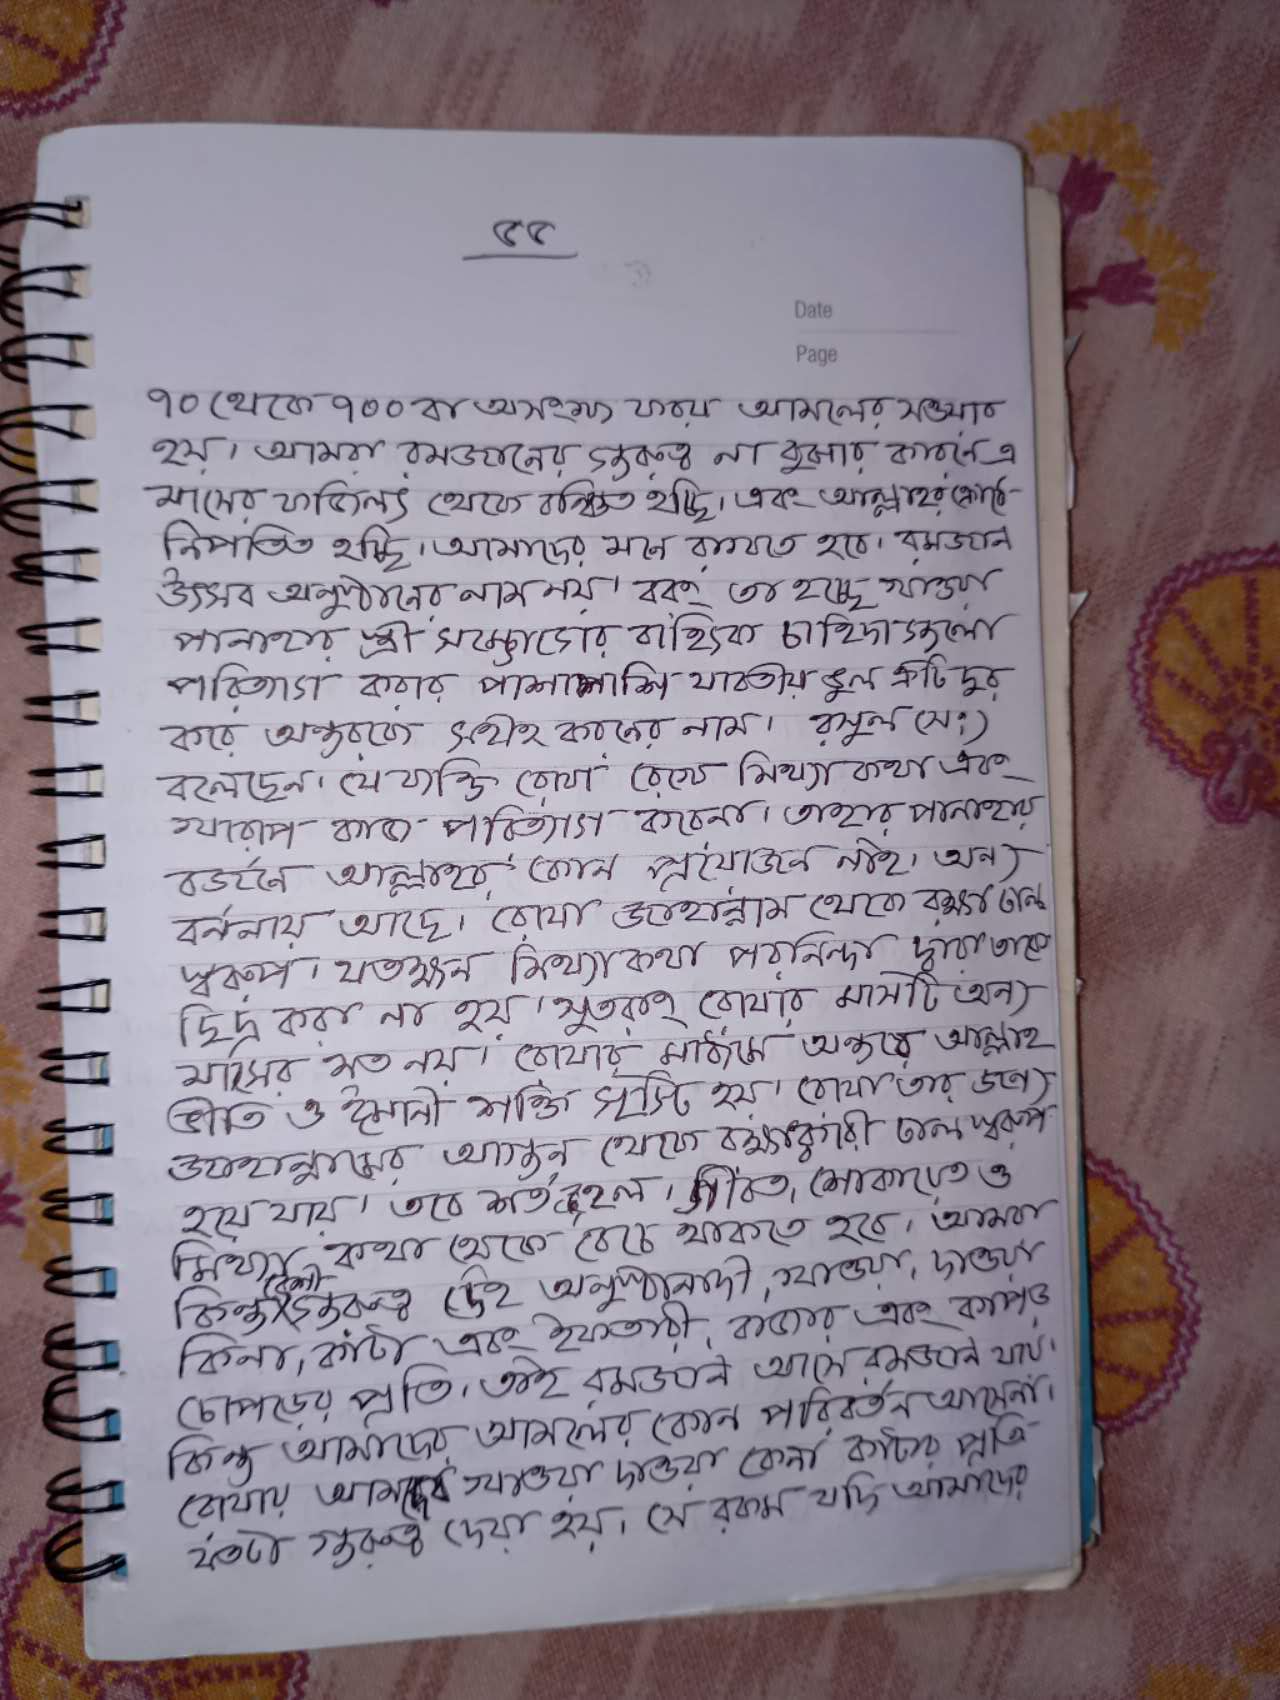 ৫৫
Date
Page
৭০ থেকে ৭০০ বা অসংখ্য ফরয আমলের সওয়াব
হয়। আমরা রমজানের গুরুত্ব না বুঝার কারনে এ
মাসের ফজিলত থেকে বঞ্চিত হচ্ছি। এবং আল্লাহর ক্রোধে
নিপতিত হচ্ছি। আমাদের মনে রাখতে হবে। রমজান
উৎসব অনুষ্ঠানের নাম নয়। বরং তা হচ্ছে খাওয়া
পানাহার স্ত্রী সম্ভোগের বাহ্যিক চাহিদাগুলো
পরিত্যাগ করার পাশাপাশি যাবতীয় ভুল ত্রুটি দুর
করে অন্তরকে সহীহ করনের নাম। রসুল (সঃ)
বলেছেন। যে ব্যক্তি রোযা রেখে মিথ্যা কথা এবং
খারাপ কাজ পরিত্যাগ করেনা। তাহার পানাহার
বর্জনে আল্লাহর কোন প্রয়োজন নাই। অন্য
বর্ননায় আছে। রোযা জাহান্নাম থেকে রক্ষা ঢাল
স্বরুপ। যতক্ষন মিথ্যা কথা পরনিন্দা দ্বারা তাকে
ছিদ্র করা না হয়। সুতরাং রোযার মাসটি অন্য
মাসের মত নয়। রোযার মাধ্যমে অন্তরে আল্লাহ
ভীতি ও ঈমানী শক্তি সৃস্টি হয়। রোযা তার জন্যে
জাহান্নামের আগুন থেকে রক্ষাকারী ঢাল স্বরুপ
হয়ে যায়। তবে শর্ত হল। গীবত, শেকায়েত ও
মিথ্যা কথা থেকে বেচে থাকতে হবে। আমরা
কিন্তু বেশী গুরুত্ব দেই অনুষ্ঠানাদী, খাওয়া, দাওয়া
কিনা, কাটা এবং ইফতারী, বাজার এবং কাপড়
চোপড়ের প্রতি। তাই রমজান আসে রমজান যায়।
কিন্তু আমাদের আমলের কোন পরিবর্তন আসেনা।
রোযায় আমাদের খাওয়া দাওয়া কেনা কাটার প্রতি
যতটা গুরুত্ব দেয়া হয়। সে রকম যদি আমাদের